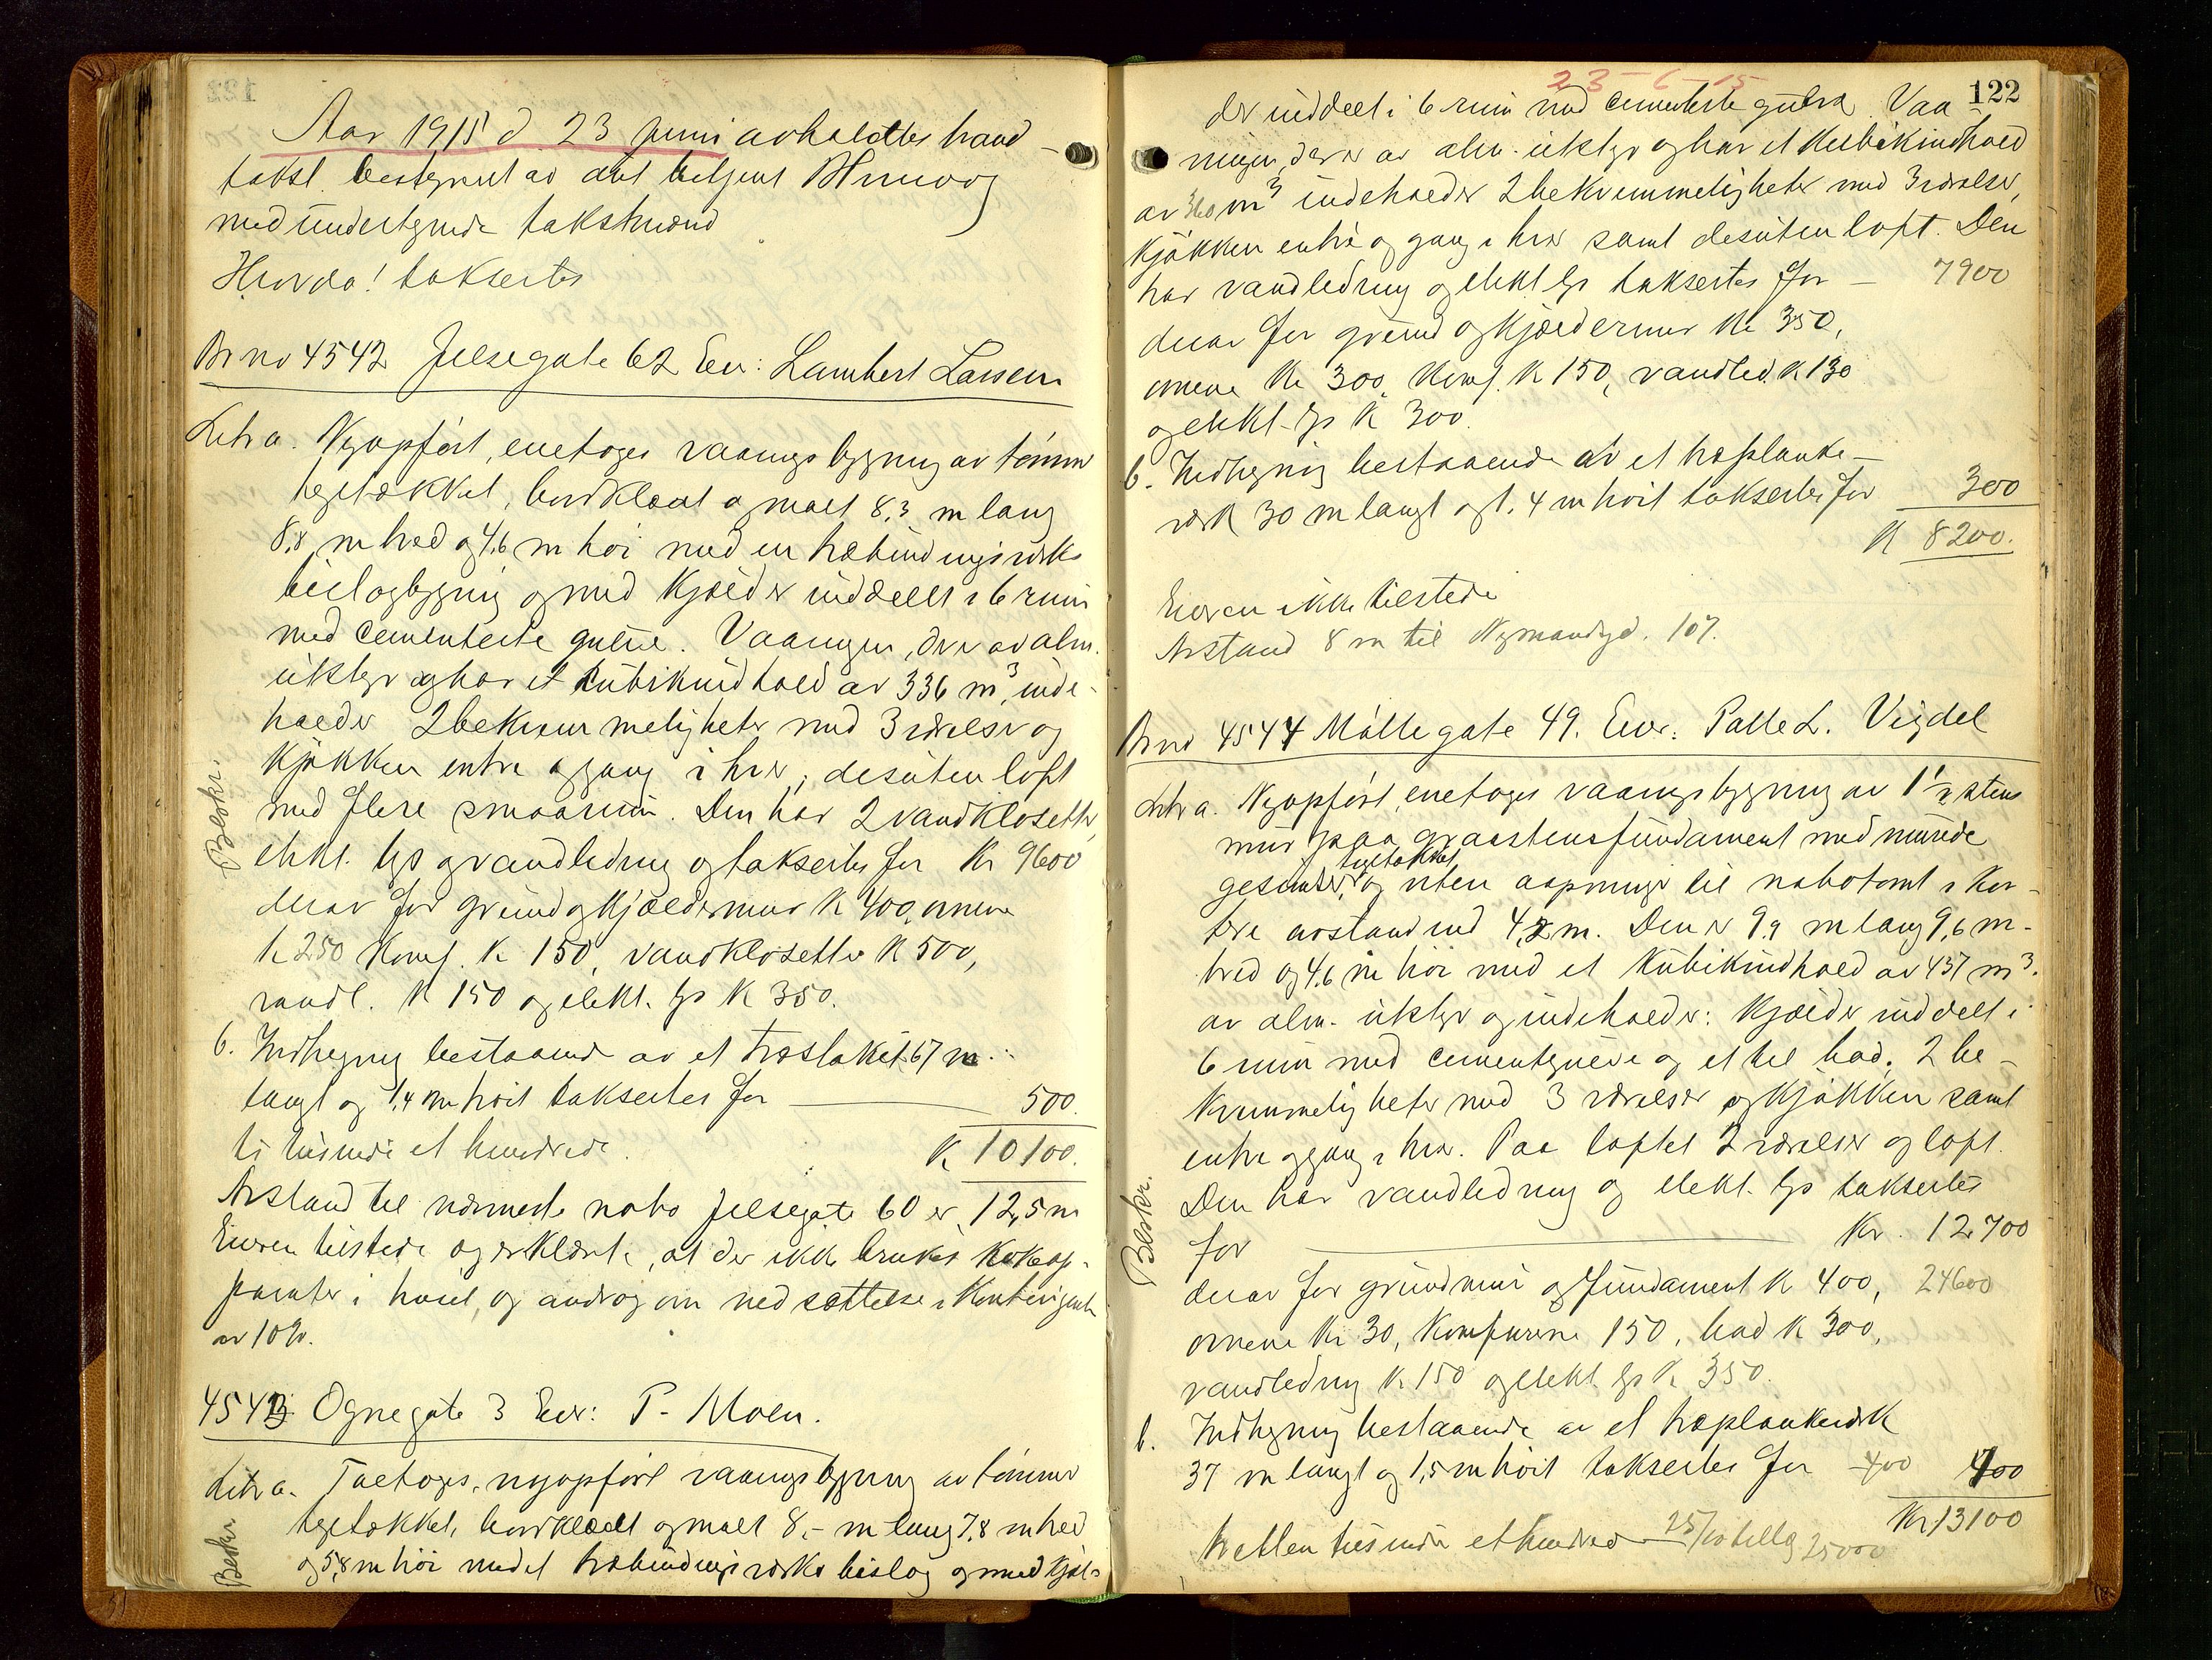 Aar 1915 d 23 juni avholdtes brand
takst bestyret av
med undertegnede takstmænd
Hvorda! takseertes
Br no 4542 Jelsegate 62 Eier: Lambert Larsen
Litr a. Nyopført, enetages vaaningsbygning av tømmer
tegltækket, bordklædt og malt 8,3 m lang
8,8 m bred og 4,6 m høi med en træbindingsverks
bislagbygning og med kjælder inddeelt i 6 rum
med cementerte gulve. Vaaningen, der er av alm.
utstyr og har et kubikindhold av 336 m³, inde-
holder 2 bekvemmeligheter med 3 værelser og
kjøkken entre og gang i hver, desuten loft
med flere smaarum. Den har 2 vandklosetter,
elekt. lys og vandledning og takseertes for Kr 9600
derav for grund og kjældermur K 400, ovnene
k 250 Komf. K 150, vandklosetter K 500,
vandl. K 150 og elekt. lys K 350.
b. Indhegning bestaaende av et træstakit 67 m
langt og 1,4 m høit takseertes for 500.
ti tusinde et hundrede. K 10100.
Avstand til nærmeste nabo Jelsegate 60 er 12,5 m
Eieren tilstede og erklærte, at der ikke brukes kokeap-
parater i huset, og androg om nedsættelse i Kontingenten
av 10%.
4543 Ognegate 3 Eier: P. Moen.
Litr a. Toetages, nyopført vaaningsbygning av tømmer
teglækket, bordklædt og malt 8,- m lang 7,8 m bred
og 5,8 m høi med et træbindingsverks bislag og med kjæl-
Beskr.
Beskr
23-6-15
122
der inddeelt i 6 rum med cementerte gulve. Vaa
ningen, der er av alm. utstyr og har et Kubikindhold
av 360 m³ indeholder 2 bekvemmeligheter med 3 værelser,
kjøkken entre og gang i hver samt desuten loft. Den
har vandledning og elekt lys takseertes for 7900
derav for grund og kjældermur Kr 350,
ovnene Kr 300, Komf. K 150, vandled. K 130
og elekt. lys K 300.
b. Indhegning bestaaende av et træplanke-
verk 30 m langt og 1.4 m høit takseertes for 300
K 8200.
Eieren ikke tilstede
Avstand 8 m til Nymandsgd. 107.
Br no 4544 Møllegate 49. Eier: Palle L. Vigdel
Litr a. Nyopført, enetages vaaningsbygning av 1½ stens
mur paa graastensfundament med murede
gesimser, teglækket og uten aapninger til nabotomt i kor-
tere avstand end 4,2 m. Den er 9.9 m lang 9,6 m
bred og 4.6 m høi med et Kubikindhold av 437 m³.
av alm. utstyr og indeholder: Kjælder inddelt i
6 rum med cementgulve og et til bad. 2 be-
kvemmeligheter med 3 værelser og kjøkken samt
entre og gang i hver. Paa loftet 2 værelser og loft.
Den har vandledning og elekt. lys takseertes
for Kr. 12.700
derav for grundmur og fundament K 400, 24600
ovnene Kr 30, Komfurene 150, bad K 300,
vandledning K 150 og elekt lys K 350.
b. Indhegning bestaaende av et træplankeverk
37 m langt og 1,5 m høit takseertes for 400 400
Kr 13100
tretten tusinde et hundred 25/10 tillæg 25000
Beskr.